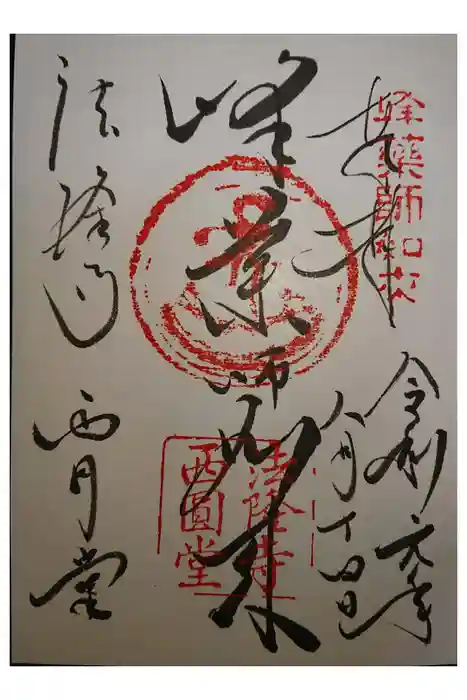 奉拝
峰藥師如来
令和元年
八月十四日
峰薬師如来
法隆寺
西圓堂
法隆寺
西円堂